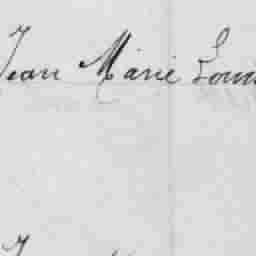 Jean Marie Louis